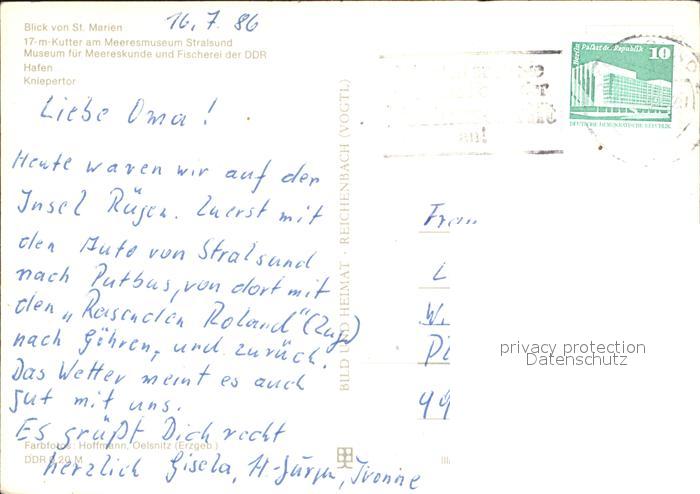 16.7.86
Blick von St. Marien
17-m-Kutter am Meeresmuseum Stralsund
Museum für Meereskunde und Fischerei der DDR
Hafen
Kniepertor
Liebe Oma!
Heute waren wir auf der
Insel Rügen. Zuerst mit
den Auto von Stralsund
nach Putbus, von dort mit
den „Rasenden Roland" (Zug)
nach Göhren, und zurück.
Das Wetter meint es auch
gut mit uns.
Es grüßt Dich recht
herzlich Gisela, H-Jürgen, Ivonne
Farbfotos: Hoffmann, Oelsnitz (Erzgeb.)
DDR 0,20 M
BILD UND HEIMAT · REICHENBACH (VOGTL)
Berlin Palast der Republik
10
DEUTSCHE DEMOKRATISCHE REPUBLIK
an!
Frau
L
W.
99
privacy protection
Datenschutz